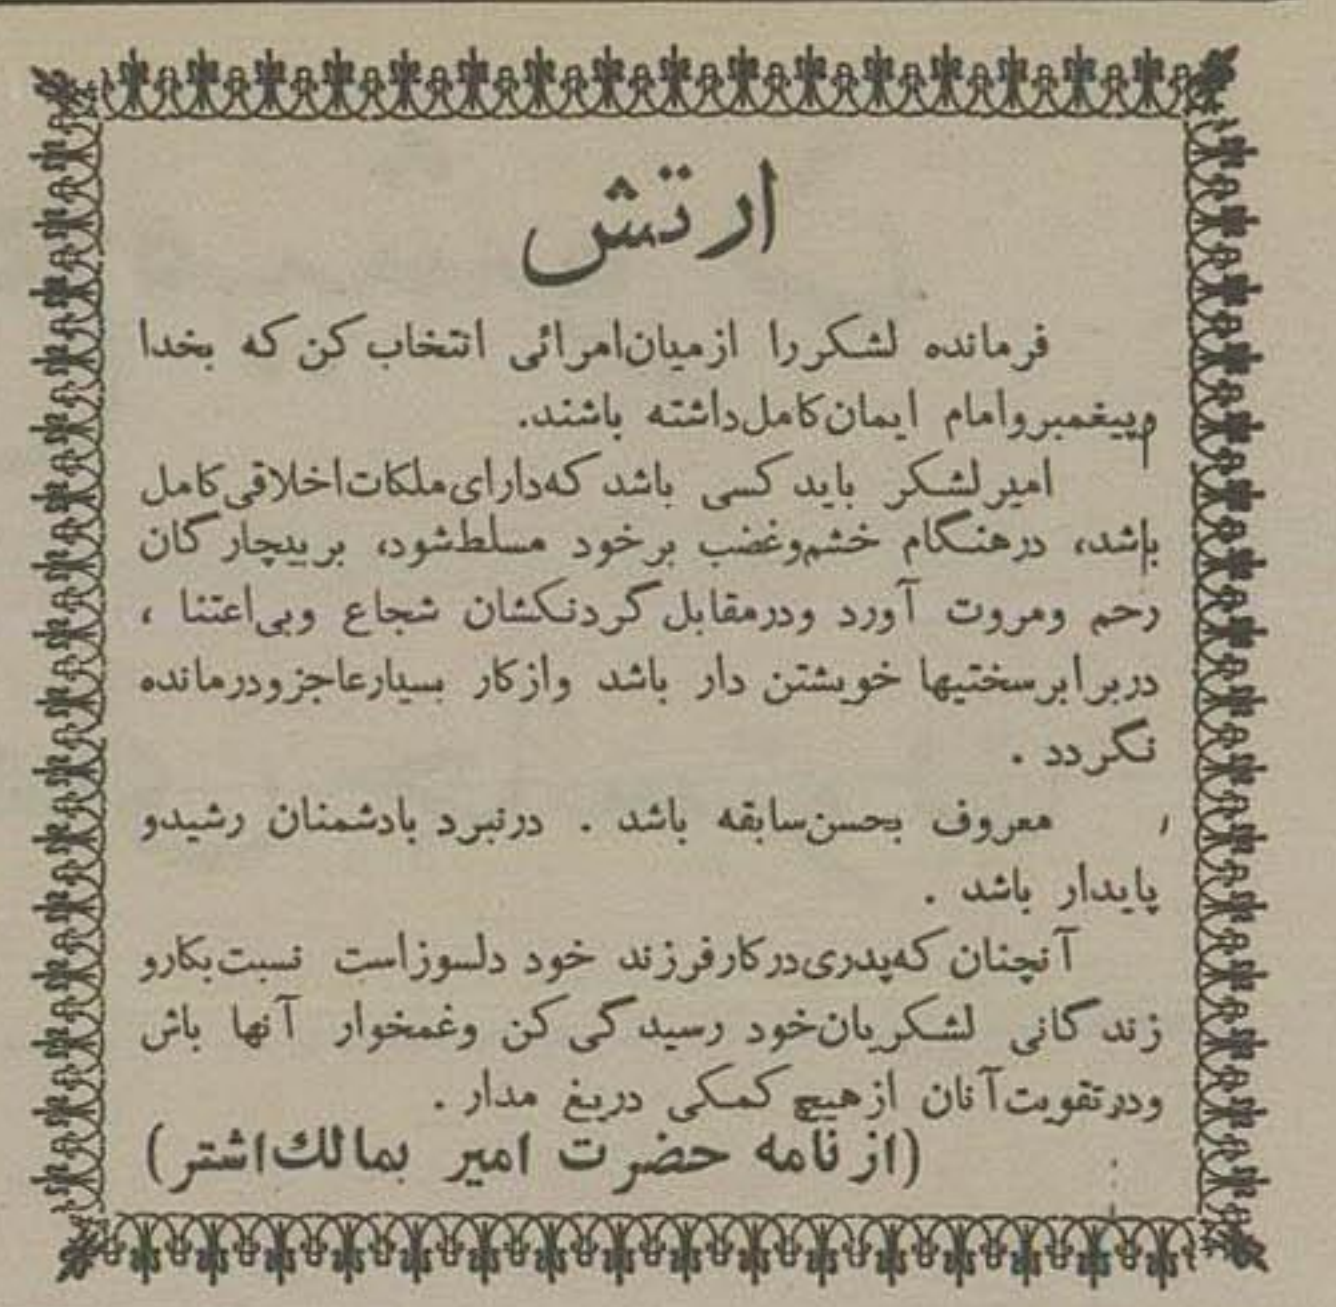 ارتش
فرمانده لشکررا ازمیان‌امرائی انتخاب‌کن‌که بخدا
وپیغمبروامام ایمان‌کامل‌داشته باشند.
امیرلشکر باید کسی باشد که‌دارای‌ملکات‌اخلاقی‌کامل
باشد، درهنگام خشم‌وغضب برخود مسلط‌شود، بربیچارگان
رحم ومروت آورد ودرمقابل گردنکشان شجاع وبی‌اعتنا ،
دربرابرسختیها خویشتن دار باشد وازکار بسیارعاجزودرمانده
نگردد .
معروف بحسن‌سابقه باشد . درنبرد بادشمنان رشیدو
پایدار باشد .
آنچنان که‌پدری‌درکارفرزند خود دلسوزاست نسبت‌بکارو
زندگانی لشکریان‌خود رسیدگی‌کن وغمخوار آنها باش
ودرتقویت‌آنان ازهیچ‌کمکی دریغ مدار .
(ازنامه حضرت امیر بمالك‌اشتر)